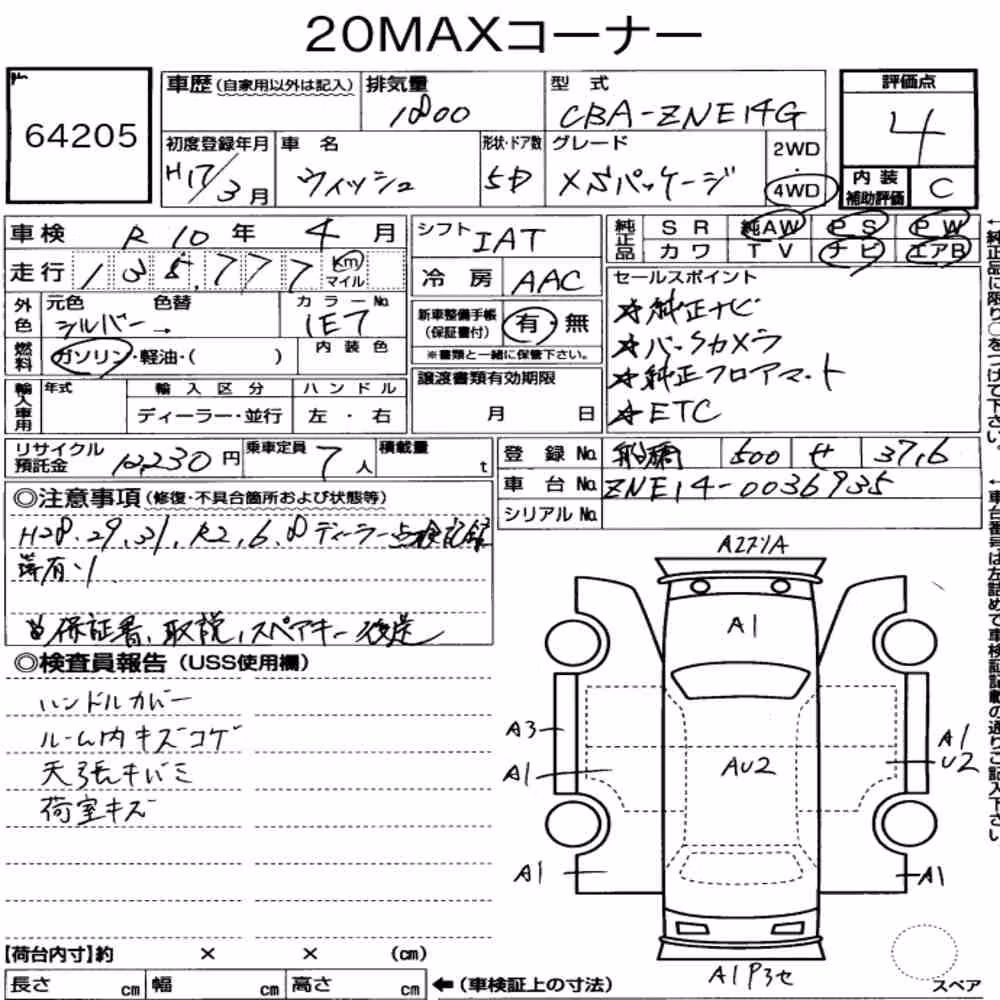 20MAXコーナー
64205
車歴 (自家用以外は記入) 排気量 1800
型式 CBA-ZNE14G
評価点 4
初度登録年月 H17/3月
車名 ウィッシュ
形状・ドア数 5D
グレード XSパッケージ
2WD・4WD
内装補助評価 C
車検 R10年 4月
走行 138,777 Km マイル
シフト IAT
冷房 AAC
純正品 SR 純AW PS PW
カワ TV ナビ エアB
外色 元色 シルバー → 色替 カラーNo. 1E7
燃料 ガソリン・軽油・( ) 内装色
新車整備手帳 (保証書付) 有・無
※書類と一緒に保管下さい。
セールスポイント
☆純正ナビ
☆バックカメラ
☆純正フロアマット
☆ETC
輸入車用 年式 輸入区分 ディーラー・並行 ハンドル 左・右
譲渡書類有効期限 月 日
リサイクル預託金 12,230円
乗車定員 7人
積載量 t
登録No. 船橋 500 せ 3716
車台No. ZNE14-0036935
シリアルNo.
◎注意事項 (修復・不具合箇所および状態等)
H28.29.31.R2,6,8ディーラー点検記録
簿有り
保証書、取説、スペアキー後送
◎検査員報告 (USS使用欄)
ハンドルカバー
ルーム内キズコゲ
天張キバミ
荷室キズ
A1
A3
A1
AU2
A1
U2
A1
A1
A1P3セ
スペア
【荷台内寸】約 × × (cm)
長さ cm 幅 cm 高さ cm ←(車検証上の寸法)
←純正品に限り○をつけて下さい。
←車台番号は左詰めで車検証記載の通りご記入下さい。